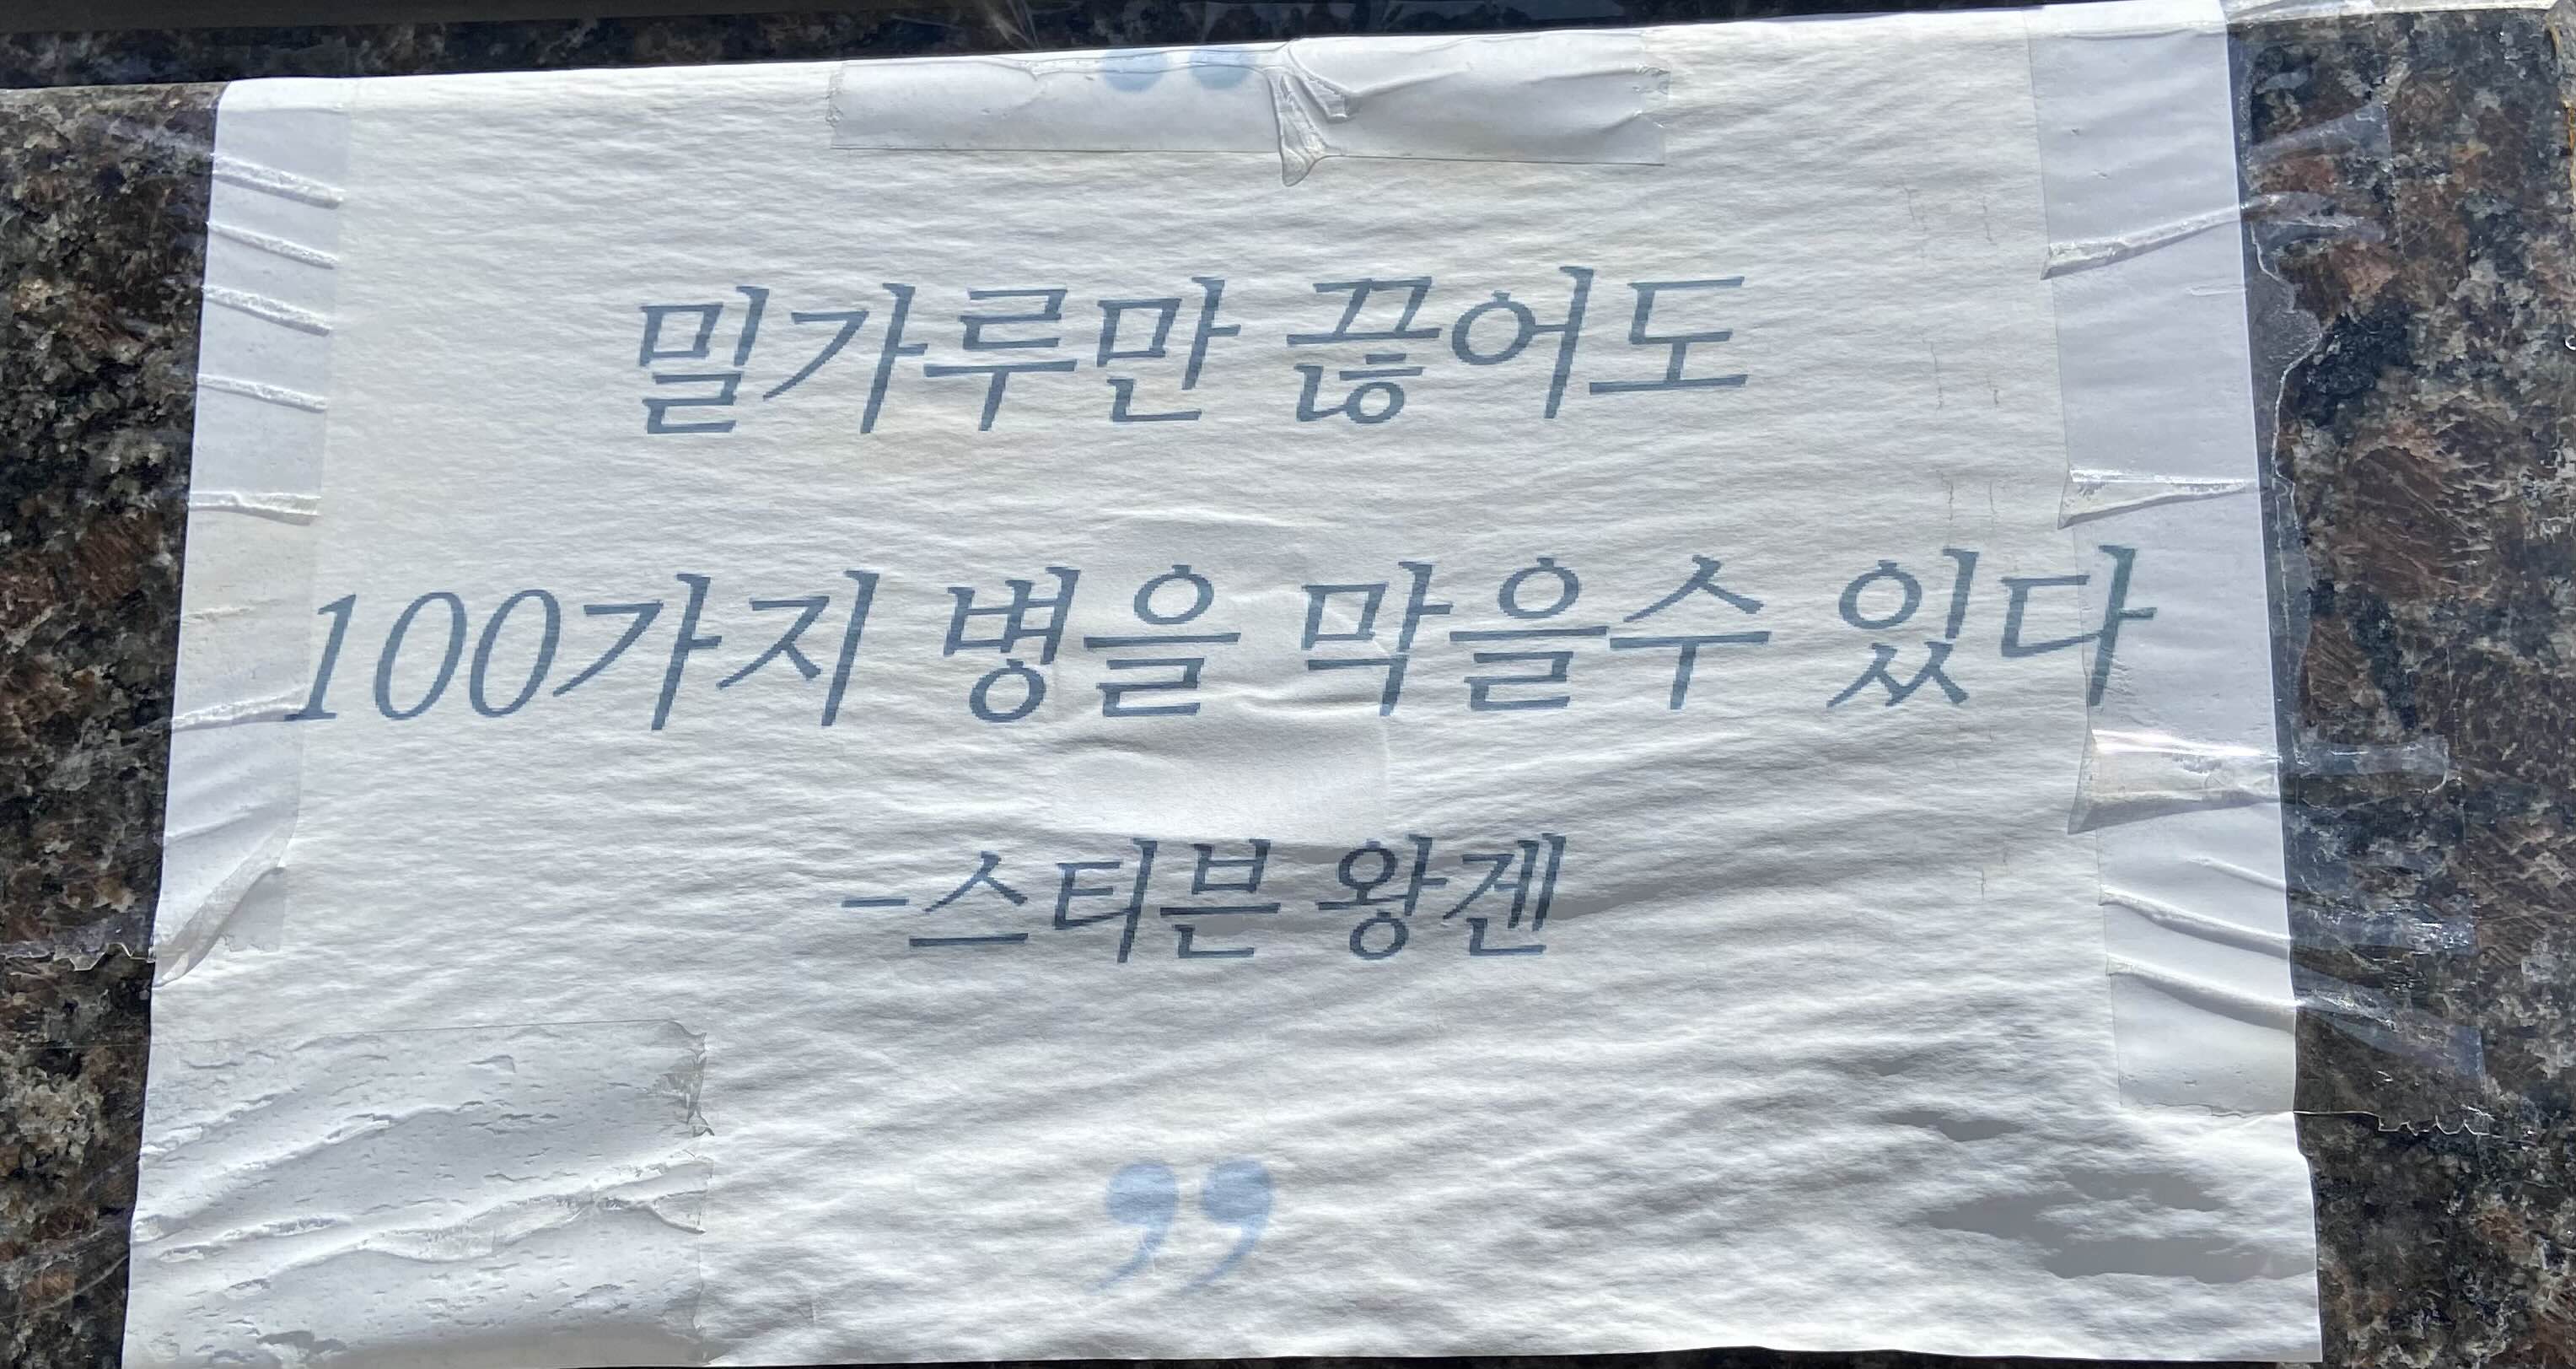 “
밀가루만 끊어도
100가지 병을 막을수 있다
-스티븐 왕겐
”